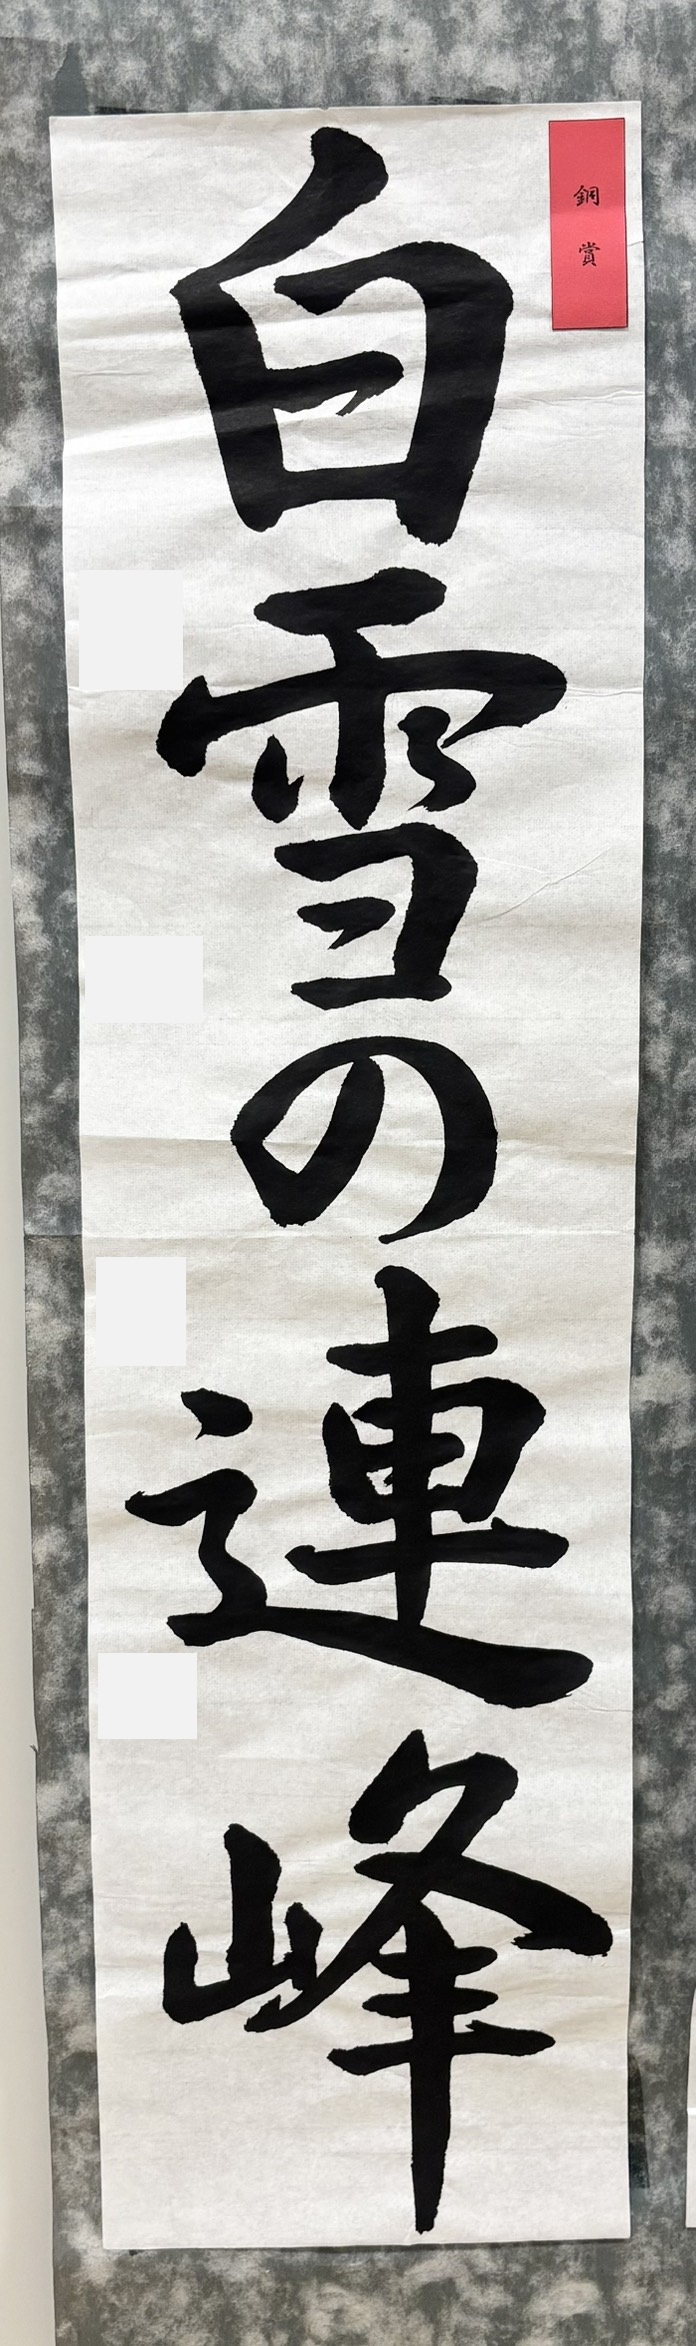 銅賞
白雪の連峰